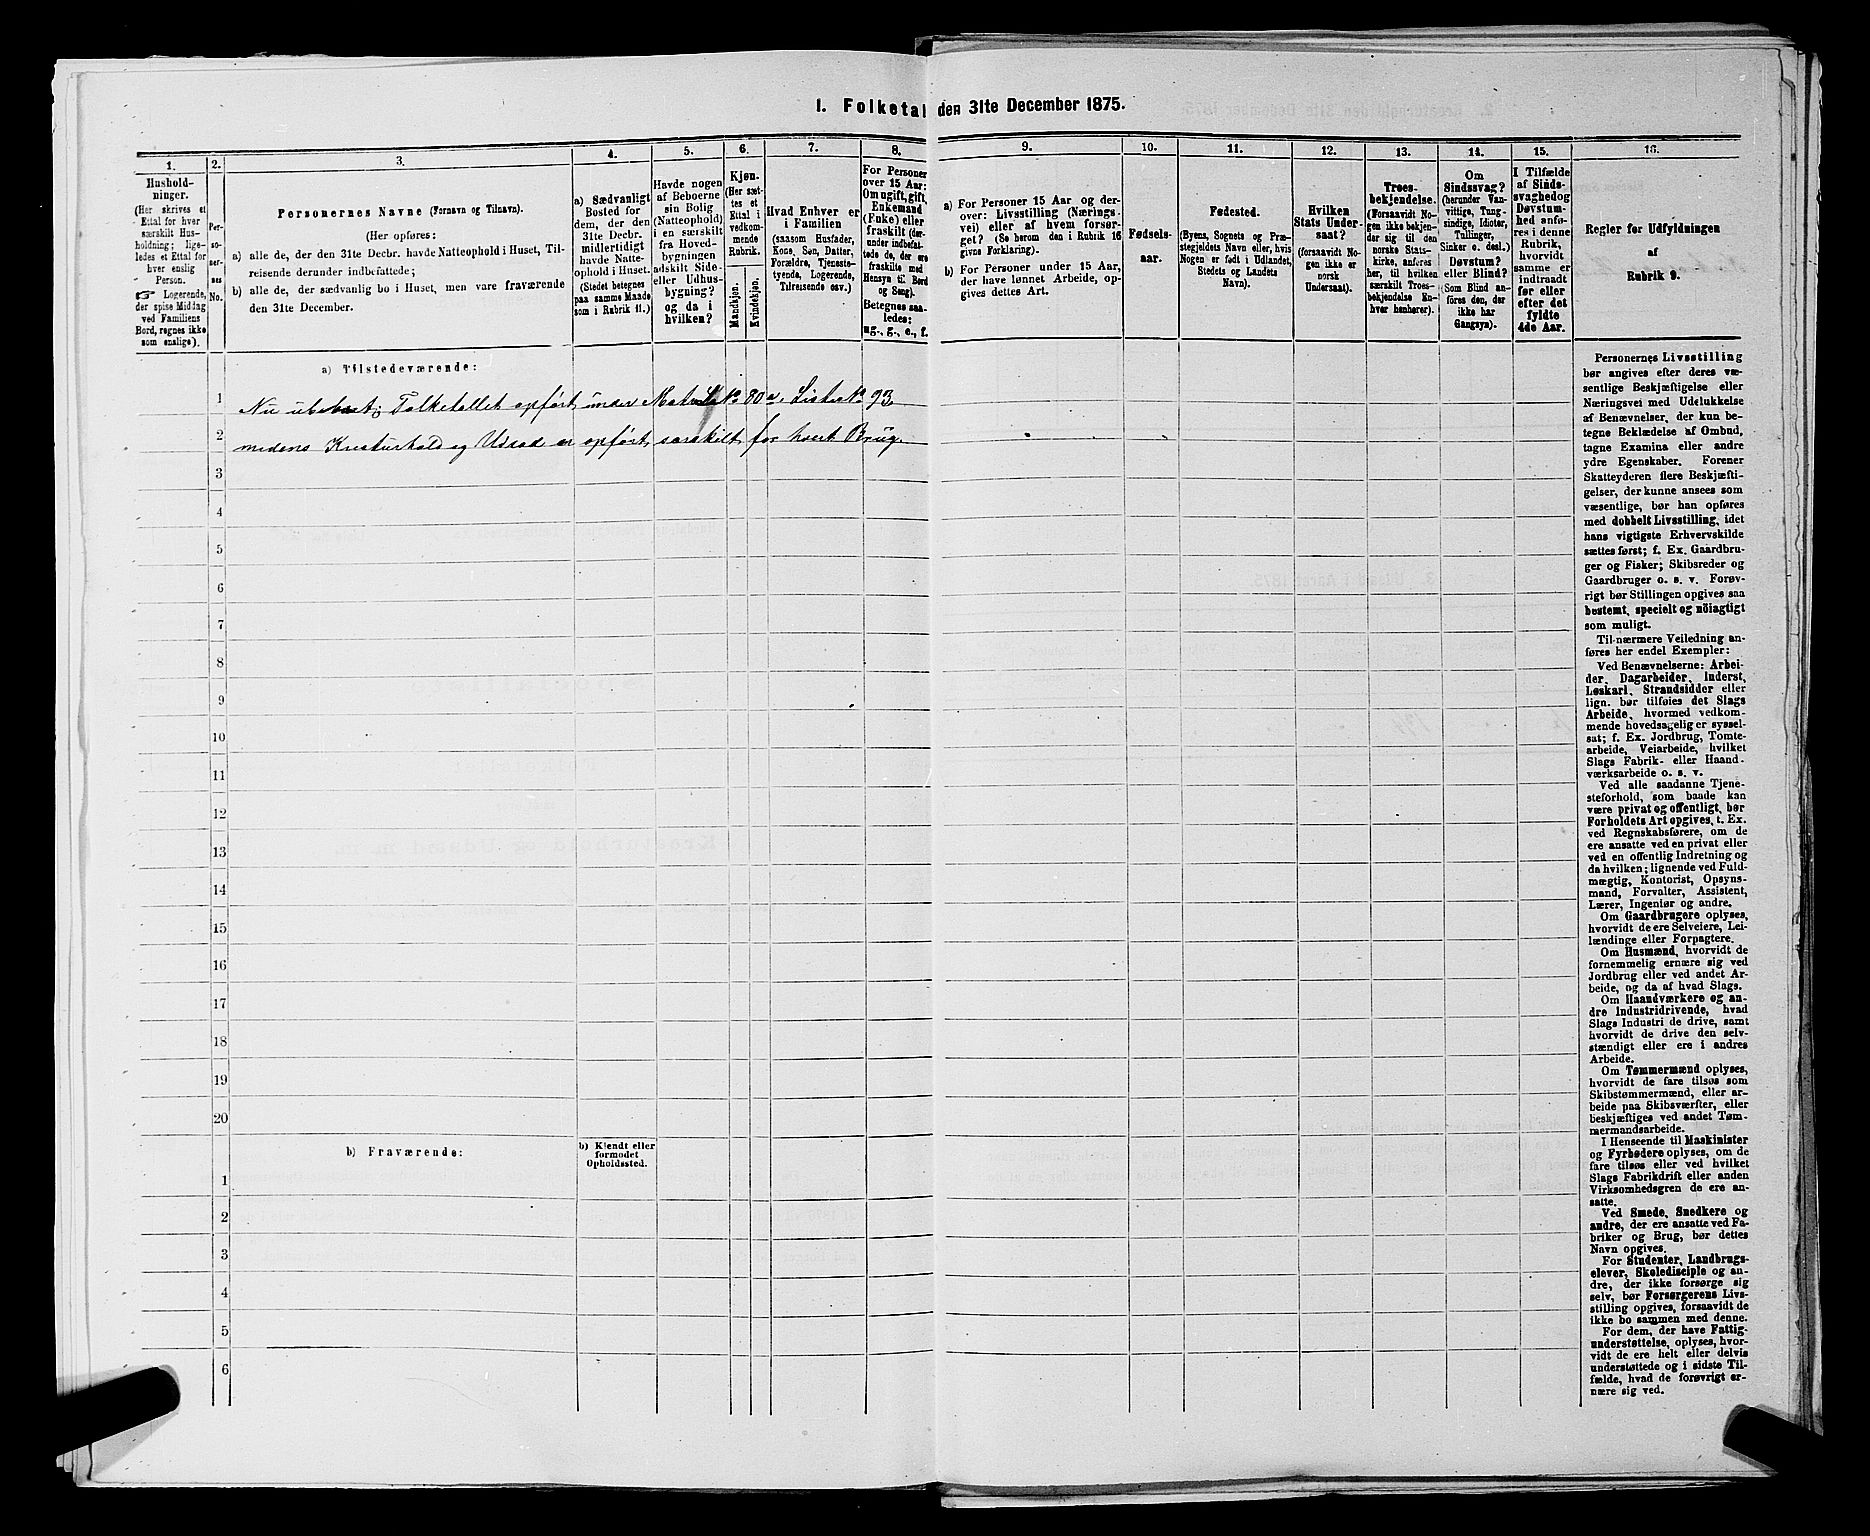 1. Folketal den 31te December 1875.
1.
Hushold-
ninger.
(Her skrives et
Ettal for hver
særskilt Hus-
holdning; lige-
ledes et Ettal for
hver enslig
Person.
☞ Logerende,
der spise Middag
ved Familiens
Bord, regnes ikke
som enslige).
2.
Per-
so-
ner-
nes
No.
3.
Personernes Navne (Fornavn og Tilnavn).
(Her opføres:
a) alle de, der den 31te Decbr. havde Natteophold i Huset, Til-
reisende derunder indbefattede;
b) alle de, der sædvanlig bo i Huset, men vare fraværende
den 31te December.
4.
a) Sædvanligt
Bosted for
dem, der den
31te Decbr.
midlertidigt
havde Natte-
ophold i Huset.
(Stedet betegnes
paa samme Maade
som i Rubrik 11.)
5.
Havde nogen
af Beboerne
sin Bolig
(Natteophold)
i en særskilt
fra Hoved-
bygningen
adskilt Side-
eller Udhus-
bygning?
og da i
hvilken?
6.
Kjøn.
(Her sæt-
tes et
Ettal i
vedkom-
mende
Rubrik.
Mandkjøn.
Kvindekjøn.
7.
Hvad Enhver er
i Familien
(saasom Husfader,
Kone, Søn, Datter,
Forældre, Tjeneste-
tyende, Logerende,
Tilreisende osv.)
8.
For Personer
over 15 Aar:
Om ugift, gift,
Enkemand
(Enke) eller
fraskilt (der-
under indbefat-
tede de, der ere
fraskilte med
Hensyn til Bord
og Seng).
Betegnes saa-
ledes:
ug., g., e., f.
9.
a) For Personer 15 Aar og der-
over: Livsstilling (Nærings-
vei) eller af hvem forsør-
get? (Se herom den i Rubrik 16
givne Forklaring).
b) For Personer under 15 Aar,
der have lønnet Arbeide, op-
gives dettes Art.
10.
Fødsels-
aar.
11.
Fødested.
(Byens, Sognets og Præ-
stegjeldets Navn eller, hvis
Nogen er født i Udlandet,
Stedets og Landets
Navn).
12.
Hvilken
Stats Under-
saat?
(forsaavidt No-
gen ikke er
norsk
Undersaat).
13.
Troes-
bekjendelse.
(Forsaavidt No-
gen ikke bekjen-
der sig til den
norske Stats-
kirke, anføres
her, til hvilken
særskilt Troes-
bekjendelse En-
hver henhører).
14.
Om
Sindssvag?
(herunder Van-
vittige, Tung-
sindige, Idioter,
Tullinger,
Sinker o. desl.)
Døvstum?
eller Blind?
(Som Blind an-
føres den, der
ikke har
Gangsyn).
15.
I Tilfælde
af Sinds-
svaghed og
Døvstum-
hed anfø-
res i denne
Rubrik,
hvorvidt
samme er
indtraadt
før eller
efter det
fyldte
4de Aar.
16.
Regler for Udfyldningen
af
Rubrik 9.
a) Tilstedeværende:
1 Nu ubeboet; Folketallet opført under Matr No 80a, Liste No 93,
2 medens Kreaturhold og Udsæd er opført særskilt for hvert Brug.
3
4
5
6
7
8
9
10
11
12
13
14
15
16
17
18
19
20
b) Fraværende:
b) Kjendt eller
formodet
Opholdssted.
1
2
3
4
5
6
Personernes Livsstilling
bør angives efter deres væ-
sentlige Beskjæftigelse eller
Næringsvei med Udelukkelse
af Benævnelser, der kun be-
tegne Beklædelse af Ombud,
tagne Examina eller andre
ydre Egenskaber. Forener
Skatteyderen flere Beskjæfti-
gelser, der kunne ansees som
væsentlige, bør han opføres
med dobbelt Livsstilling, idet
hans vigtigste Erhvervskilde
sættes først; f. Ex. Gaardbru-
ger og Fisker; Skibsreder og
Gaardbruger o. s. v. Forøv-
rigt bør Stillingen opgives saa
bestemt, specielt og nöiagtigt
som muligt.
Til nærmere Veiledning an-
føres her endel Exempler:
Ved Benævnelserne: Arbei-
der, Dagarbeider, Inderst,
Løskarl, Strandsidder eller
lign. bør tilføies det Slags
Arbeide, hvormed vedkom-
mende hovedsagelig er syssel-
sat; f. Ex. Jordbrug, Tomte-
arbeide, Veiarbeide, hvilket
Slags Fabrik- eller Haand-
værksarbeide o. s. v.
Ved alle saadanne Tjene-
steforhold, som baade kan
være privat og offentligt, bør
Forholdets Art opgives, t. Ex.
ved Regnskabsførere, om de
ere ansatte ved en privat eller
ved en offentlig Indretning og
da hvilken; lignende ved Fuld-
mægtig, Kontorist, Opsyns-
mand, Forvalter, Assistent,
Lærer, Ingeniør og andre.
Om Gaardbrugere oplyses,
hvorvidt de ere Selveiere, Lei-
lændinge eller Forpagtere.
Om Husmænd, hvorvidt de
fornemmelig ernære sig ved
Jordbrug eller ved andet Ar-
beide, og da af hvad Slags.
Om Haandværkere og an-
dre Industridrivende, hvad
Slags Industri de drive, samt
hvorvidt de drive den selv-
stændigt eller ere i andres
Arbeide.
Om Tømmermænd oplyses,
hvorvidt de fare tilsøs som
Skibstømmermænd, eller ar-
beide paa Skibsværfter, eller
beskjæftiges ved andet Tøm-
mermandsarbeide.
I Henseende til Maskinister
og Fyrbødere oplyses, om de
fare tilsøs eller ved hvilket
Slags Fabrikdrift eller anden
Virksomhedsgren de ere an-
satte.
Ved Smede, Snedkere og
andre, der ere ansatte ved Fa-
briker og Brug, bør dettes
Navn opgives.
For Studenter, Landbrugs-
elever, Skoledisciple og an-
dre, der ikke forsørge sig
selv, bør Forsørgerens Livs-
stilling opgives, forsaavidt de
ikke bo sammen med denne.
For dem, der have Fattig-
understøttelse, oplyses, hvor-
vidt de ere helt eller delvis
understøttede og i sidste Til-
fælde, hvad de forøvrigt er-
nære sig ved.